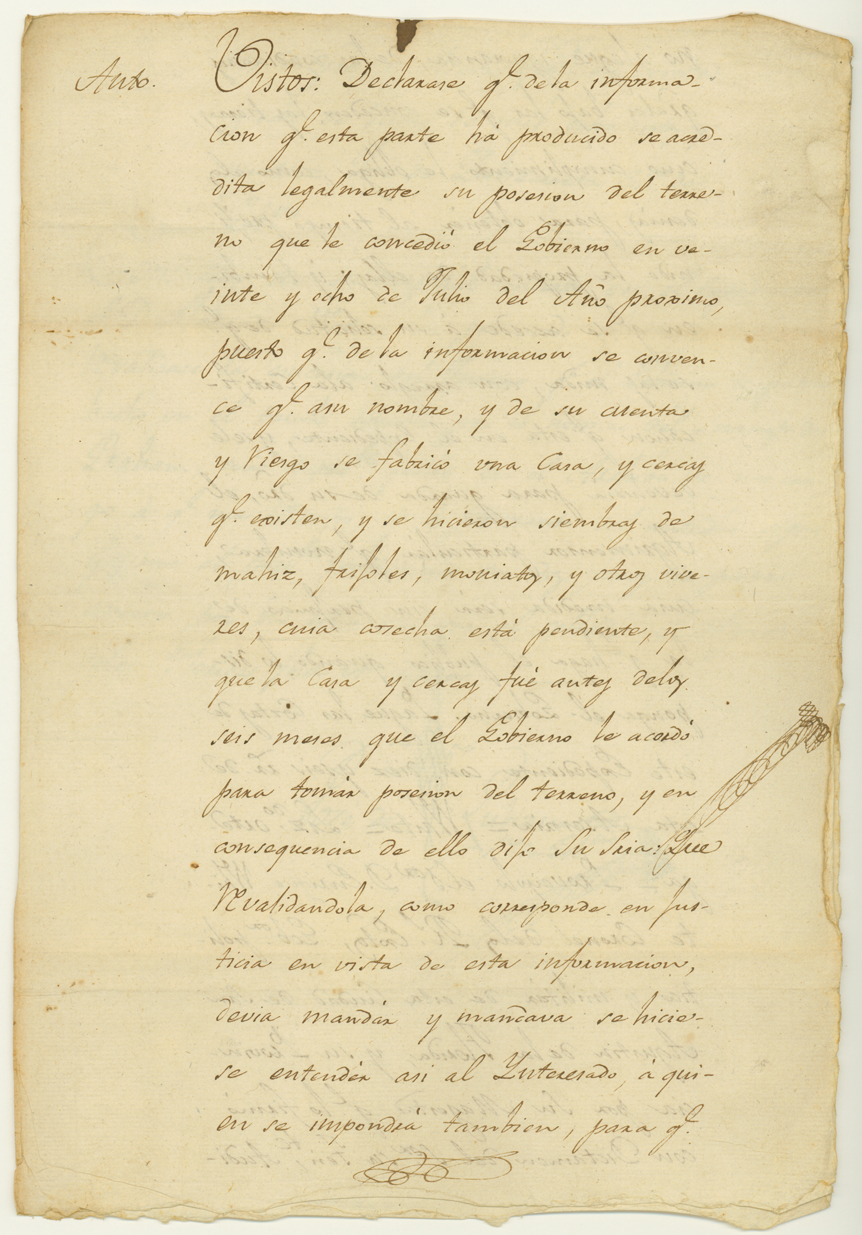 Auto.
Vistos: Declarase q.e de la informa-
cion q.e esta parte há producido se acre-
dita legalmente su posesion del terre-
no que le concedió el Gobierno en ve-
inte y ocho de Julio del Año proximo,
puesto q.e de la informacion se conven-
ce q.e asu nombre, y de su cuenta
y Riesgo se fabricó vna Casa, y cercas
q.e existen, y se hicieron siembras de
mahiz, frisoles, moniatos, y otros vive-
res, cuia cosecha está pendiente, y
que la Casa y cercas fué antes delos
seis meses que el Gobierno le acordó
para tomár posesion del terreno, y en
consequencia de ello dijo Su Sria: Que
Revalidandola, como corresponde en Jus-
ticia en vista de esta informacion,
devia mandár y mandava se hicie-
se entendér asi al Ynteresado, á qui-
en se impondrá tambien, para q.e